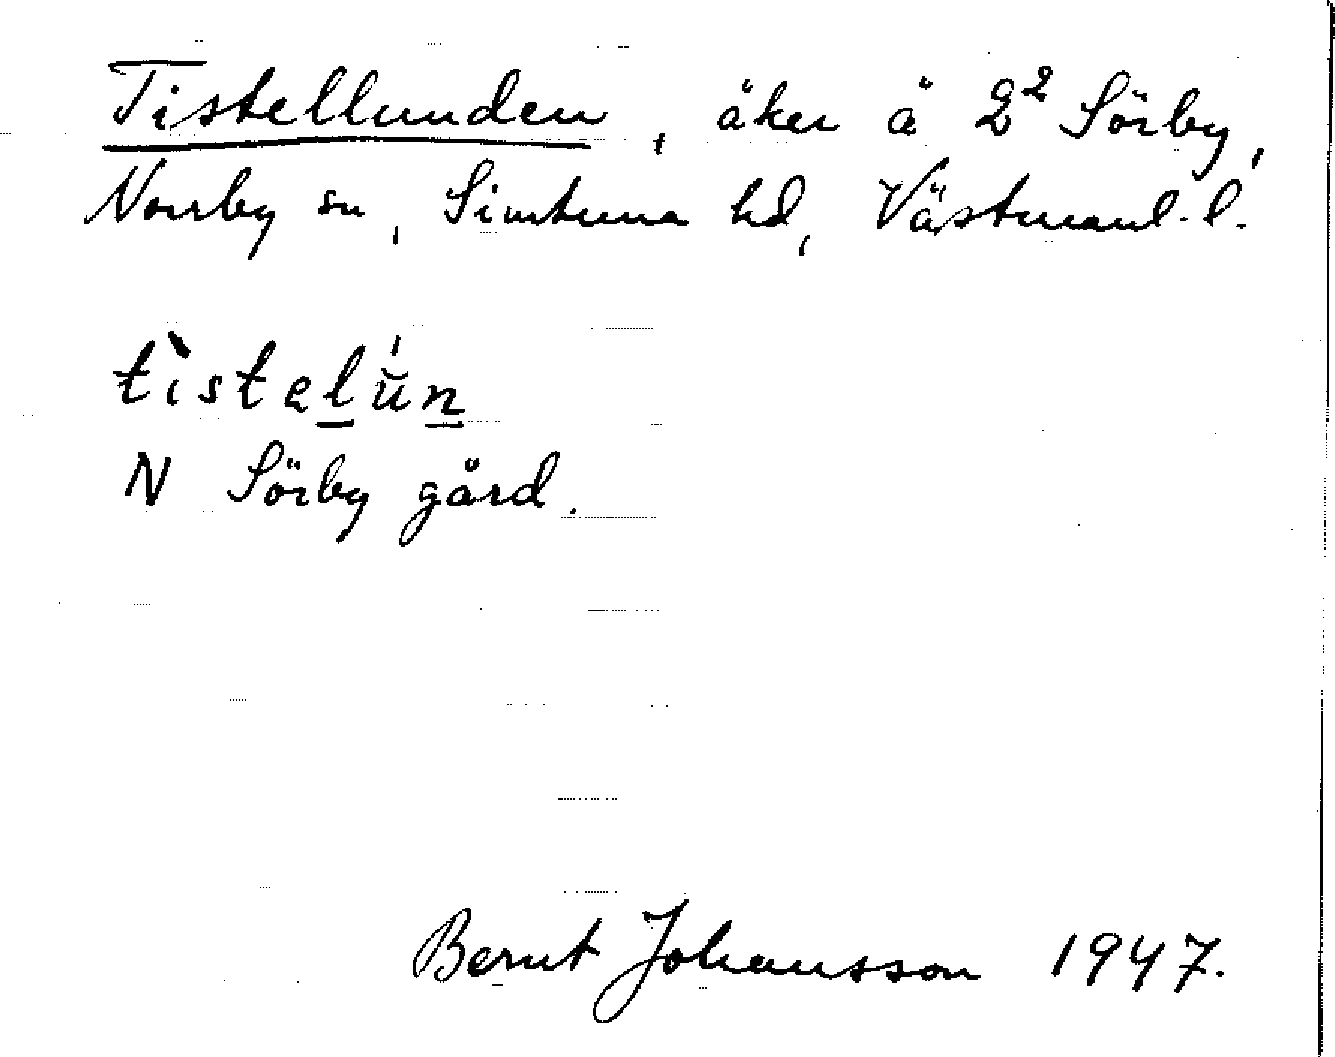 Tistellunden, åker å 2² Sörby,
Norrby sn, Simtuna hd, Västmanl. l.
tìstelún
N Sörby gård.
Bernt Johansson 1947.